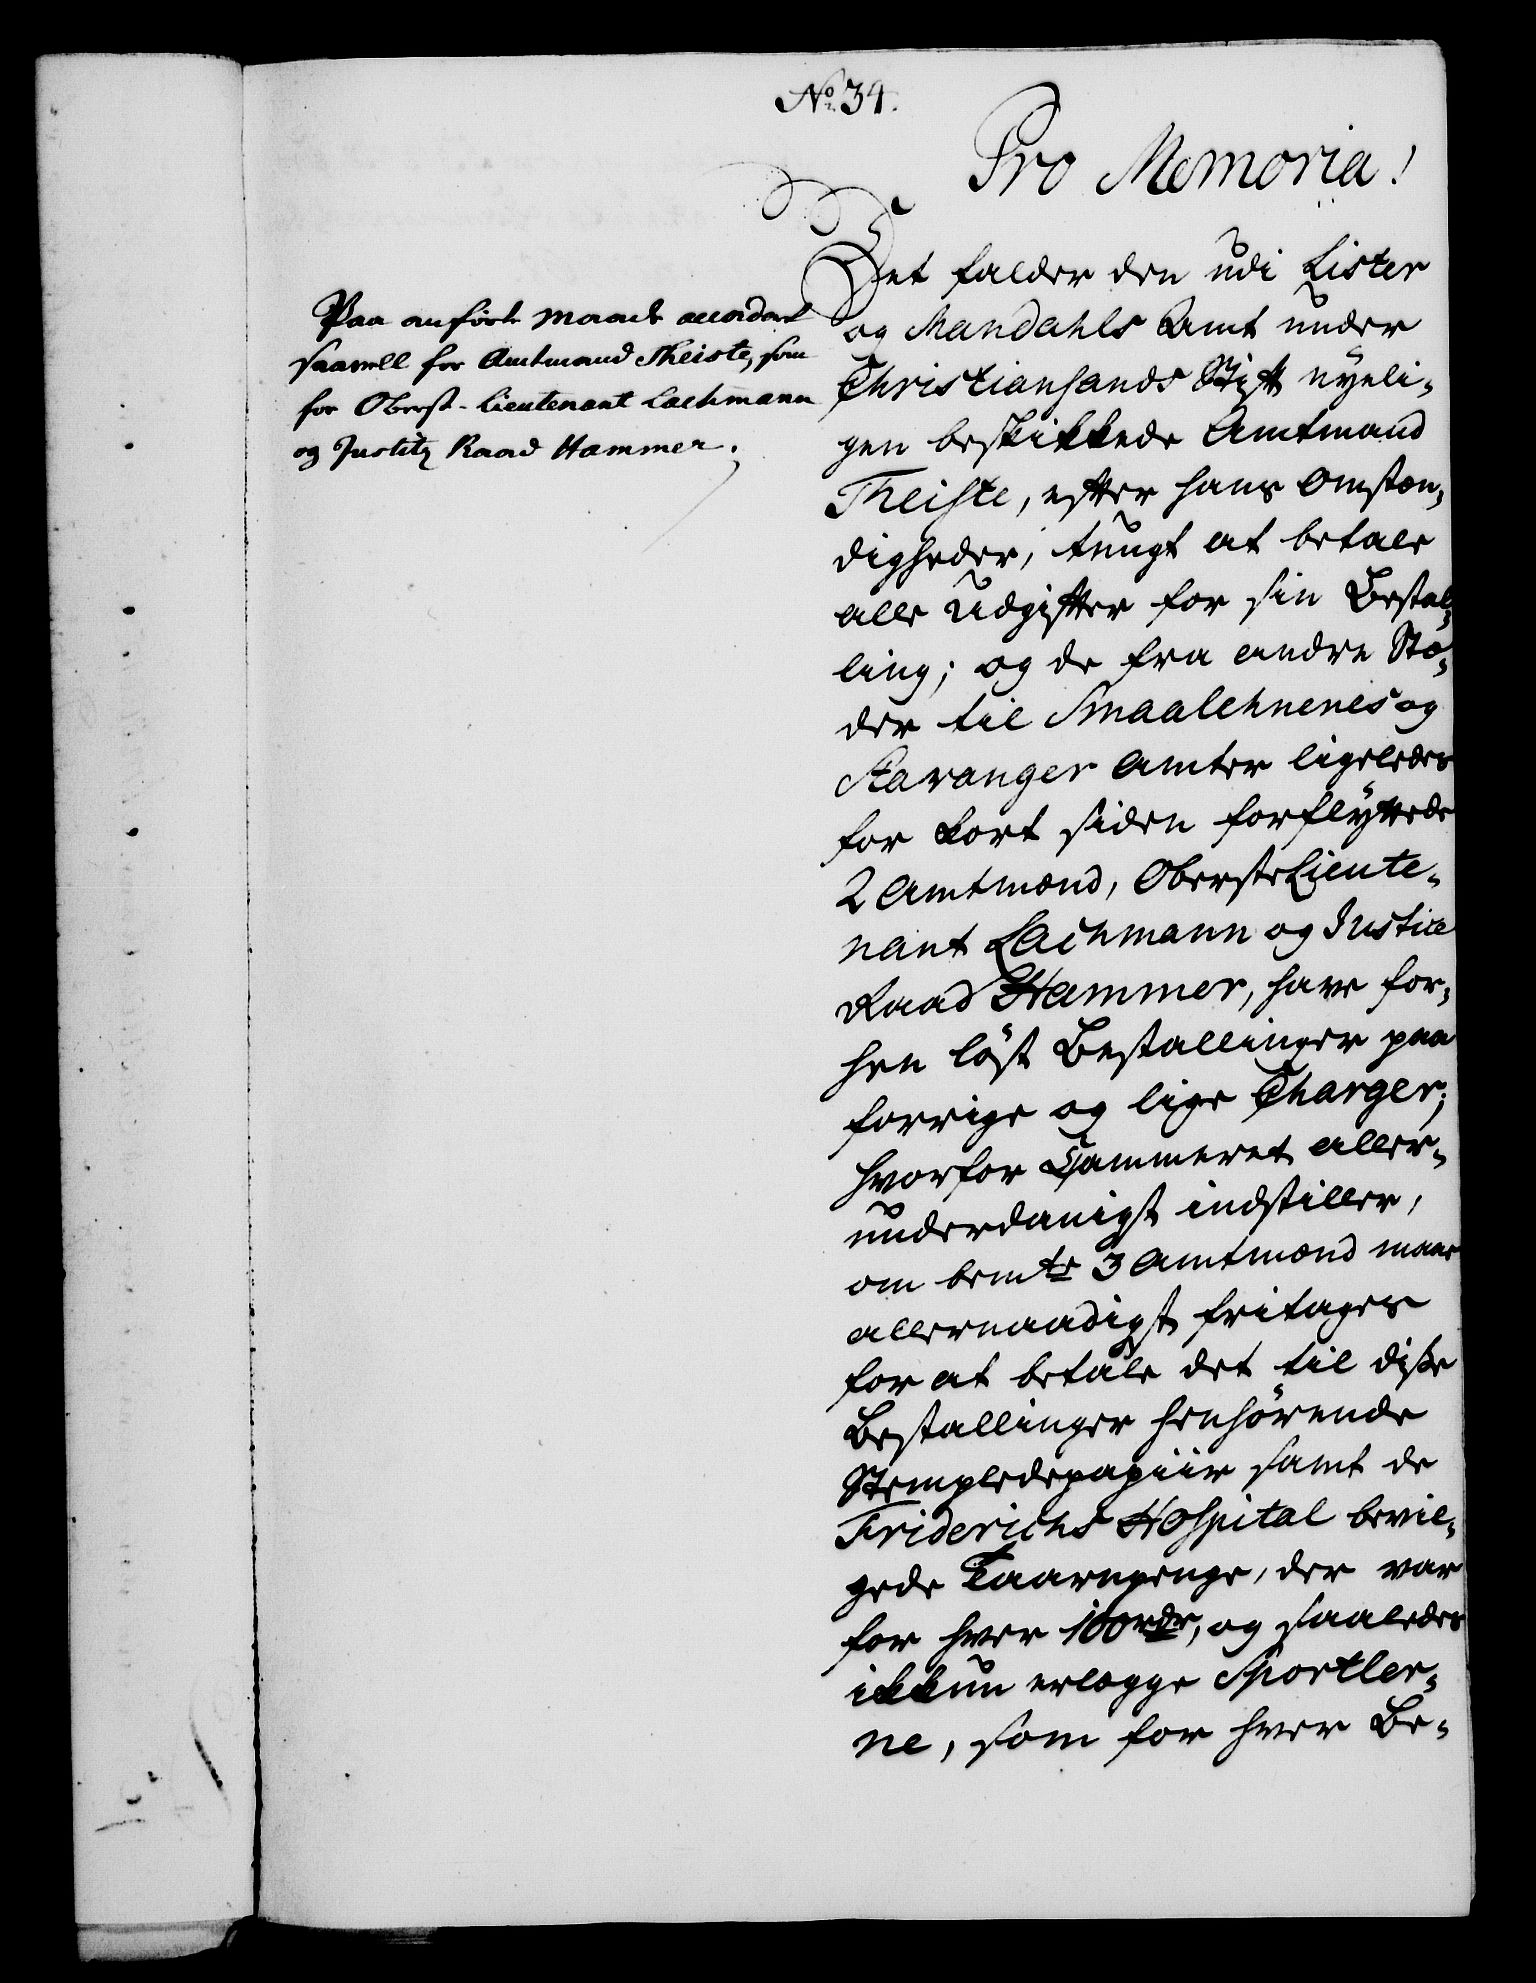 No. 34.
Pro Memoria!
Paa anförte Maade accorderet
saavell for Amtmand Theiste, som
for Oberst-Lieutenant Lachmann
og Justitz Raad Hammer.
Det falder den udi Lister
og Mandahls Amt under
Christiansands Stift nyeli-
gen beskikkede Amtmand
Theiste, efter hans Omstæn-
digheder, tungt at betale
alle Udgifter for sin Bestal-
ling; og de fra andre Stæ-
der til Smaalehnenes og
Stavanger Amter ligeledes
for kort siden forflyttede
2 Amtmænd, OberstLieute-
nant Lachmann og Justice
Raad Hammer, have for-
hen löst Bestallinger paa
forrige og lige Charger;
hvorfor Cammeret aller-
underdanigst indstiller,
om bemte 3 Amtmænd maae
allernaadigst fritages
for at betale det til disse
Bestallinger henhörende
Stempledepapiir samt de
Friderichs Hospital bevil-
gede Taarnpenge, der var
for hver 100 rdr, og saaledes
ikkun erlægge Sportler-
ne, som for hver Be-